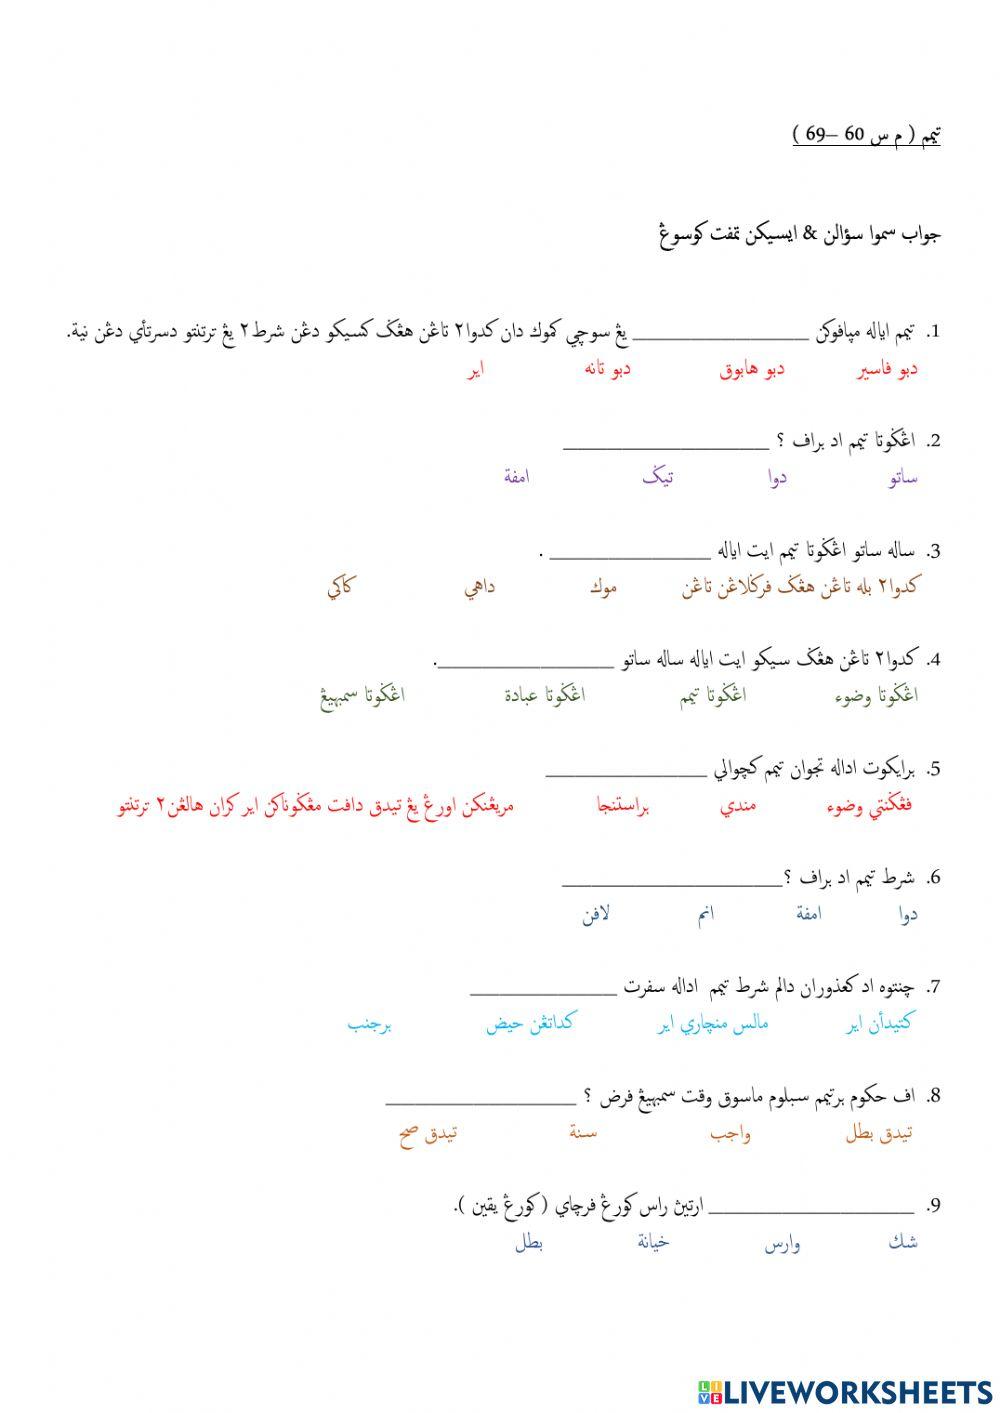 تيمم ( م س 60 –69 )
جواب سموا سؤالن & ايسيكن تمفت كوسوڠ
1. تيمم اياله مپافوكن ________________ يڠ سوچي كموك دان كدوا٢ تاڠن هڠݢ كسيكو دڠن شرط٢ يڠ ترتنتو دسرتأي دڠن نية.
دبو فاسير دبو هابوق دبو تانه اير
2. اڠݢوتا تيمم اد براف ؟ ___________________
ساتو دوا تيݢ امفة
3. ساله ساتو اڠݢوتا تيمم ايت اياله _______________ .
كدوا٢ بله تاڠن هڠݢ فرݢلاڠن تاڠن موك داهي كاكي
4. كدوا٢ تاڠن هڠݢ سيكو ايت اياله ساله ساتو ________________.
اڠݢوتا وضوء اڠݢوتا تيمم اڠݢوتا عبادة اڠݢوتا سمبهيڠ
5. برايكوت اداله تجوان تيمم كچوالي _______________
فڠݢنتي وضوء مندي براستنجا مريڠنكن اورڠ يڠ تيدق دافت مڠݢوناكن اير كران هالڠن٢ ترتنتو
6. شرط تيمم اد براف ؟____________________
دوا امفة انم لافن
7. چنتوه اد كعذوران دالم شرط تيمم اداله سفرت ______________
كتيدأن اير مالس منچاري اير كداتڠن حيض برجنب
8. اف حكوم برتيمم سبلوم ماسوق وقت سمبهيڠ فرض ؟ __________________
تيدق بطل واجب سنة تيدق صح
9. ___________________ ارتيڽ راس كورڠ فرچاي (كورڠ يقين ).
شك وارس خيانة بطل
LIVE LIVEWORKSHEETS